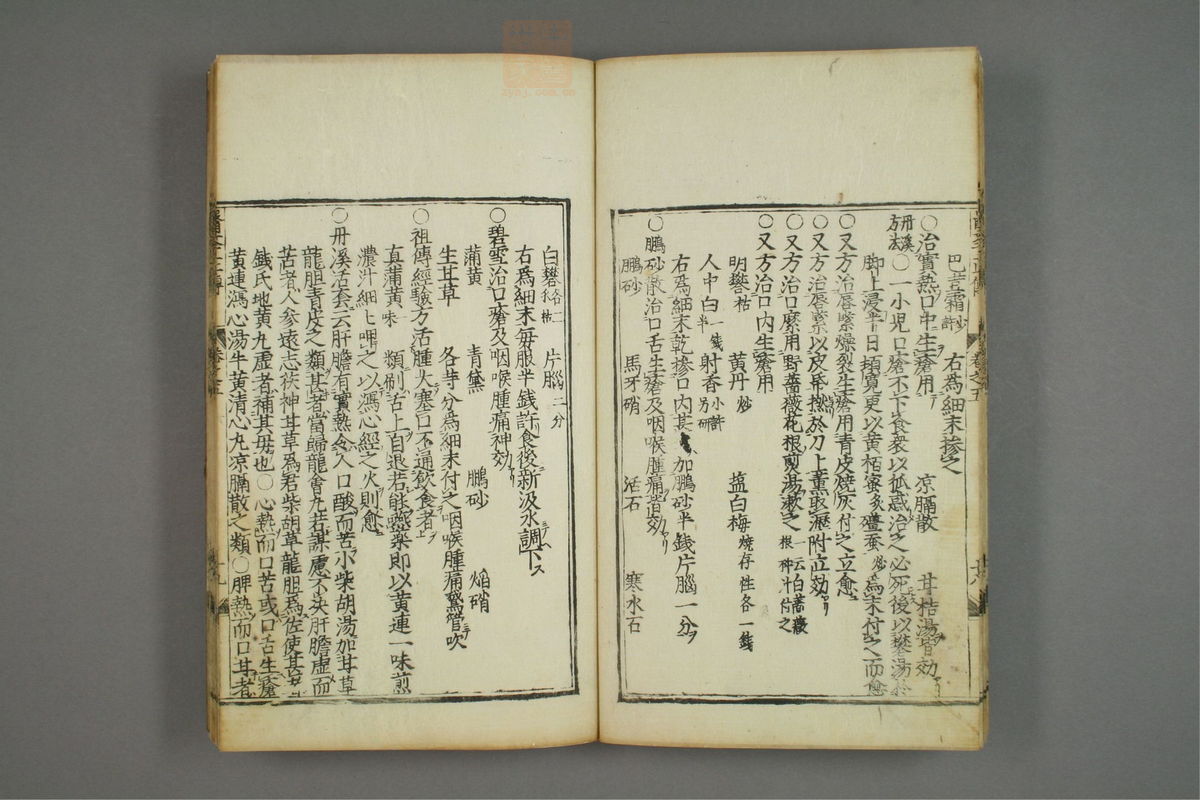 巴豆霜少許 右爲細末掺之
〇治實熱口中生瘡用 凉膈散 甘桔湯皆効
丹溪方法〇一小児口瘡不下食衆以狐惑治之必死後以礬湯於
脚上浸半日頓寛更以黄栢蜜炙殭蚕炒爲末付之而愈
〇又方治唇緊燥裂生瘡用青皮燒灰付之立愈
〇又方治唇緊以皮帛於刀上薫取瀝附立効
〇又方治口糜用野薔薇花根煎湯漱之一云白薔薇根砕汁付之
〇又方治口内生瘡用
明礬枯 黄丹炒 塩白梅燒存性各一錢
人中白一錢半 射香小許另研
右爲細末乾掺口内甚 加鵬砂半錢片腦一分
〇鵬砂散治口舌生瘡及咽喉腫痛皆効
鵬砂 馬牙硝 活石 寒水石
白礬枯各二 片腦二分
右爲細末毎服半錢許食後新汲水調下
〇碧雪治口瘡及咽喉腫痛神効
蒲黄 青黛 鵬砂 焔硝
生甘草 各等分爲細末付之咽喉腫痛鵞管吹
〇祖傳經驗方活腫大塞口不通飲食者
真蒲黄一味 頻刷舌上自退若能嚥藥即以黄連一味煎
濃汁細々呷之以瀉心經之火則愈
〇丹溪活套云肝膽有實熱令人口酸而苦小柴胡湯加甘草
龍胆青皮之類甚者當歸龍會丸若謀慮不决肝膽虚而
苦者人參遠志茯神甘草爲君柴胡草龍胆爲佐使甚者
錢氏地黄丸虚者補其母也〇心熱而口苦或口舌生瘡
黄連瀉心湯牛黄清心丸凉膈散之類〇脾熱而口甘者